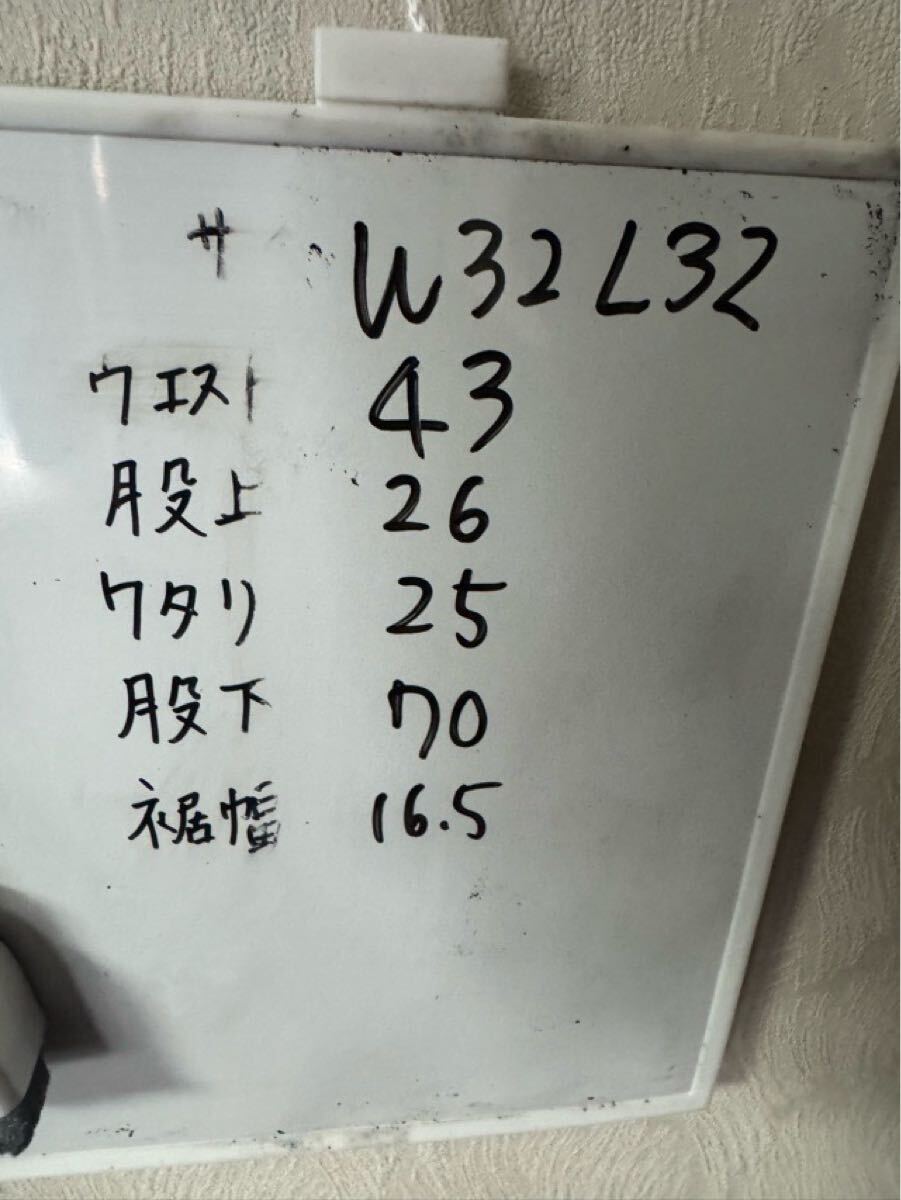 サ W32 L32
ウエスト 43
股上 26
ワタリ 25
股下 70
裾幅 16.5